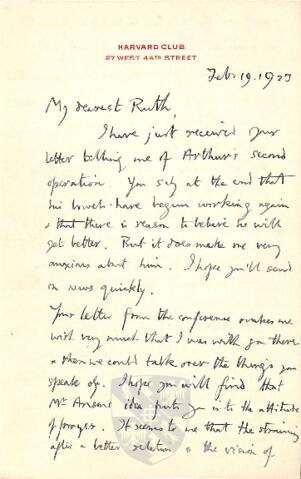 HARVARD CLUB
27 WEST 44TH STREET
Feb 19. 1923
My dearest Ruth,
I have just received your
letter telling me of Arthur's second
operation. You say at the end that
his bowels have begun working again
& that there is reason to believe he will
get better. But it does make me very
anxious about him. I hope you'll send
on news quickly.
Your letter from the conference makes me
wish very much that I was with you there
& then we could talk over the things you
speak of. I hope you will find that
Mr Ansons idea puts you into the attitude
of prayer. It seems to me that the straining
after a better relation & the vision of